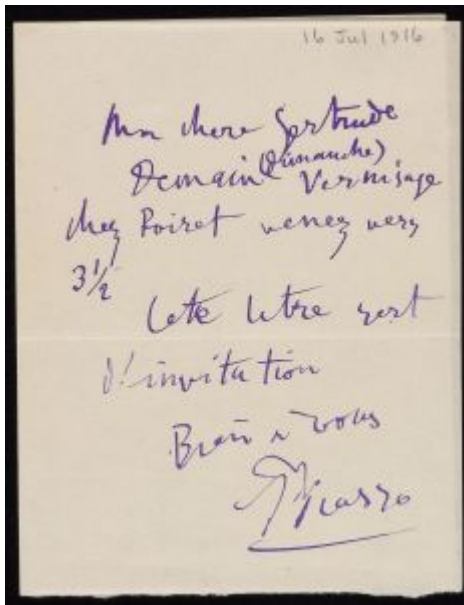 16 Jul 1916
Ma chere Gertrude
Demain (Dimanche) Vernisage
chez Poiret venez very
3 1/2
Cete letre sert
d'invitation
Bien a vous
Picasso